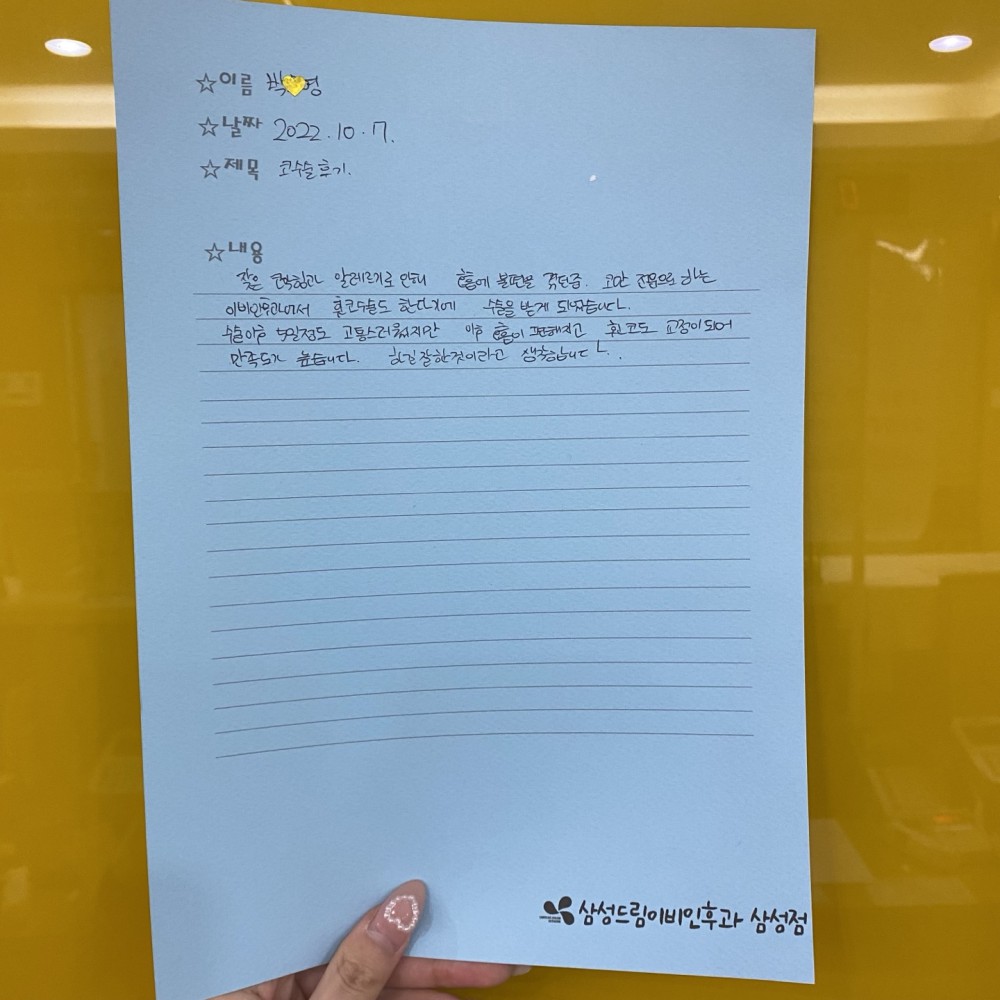 ☆이름 박 영
☆날짜 2022.10.7.
☆제목 코수술후기.
☆내용
잦은 코막힘과 알레르기로 인해 호흡에 불편을 겪던중. 코만 전문으로 하는
이비인후과에서 휜코수술도 한다기에 수술을 받게 되었습니다.
수술이후 5일정도 고통스러웠지만 이후 호흡이 편해지고 휜코도 교정이되어
만족도가 높습니다. 하길 잘한것이라고 생각합니다.
삼성드림이비인후과 삼성점